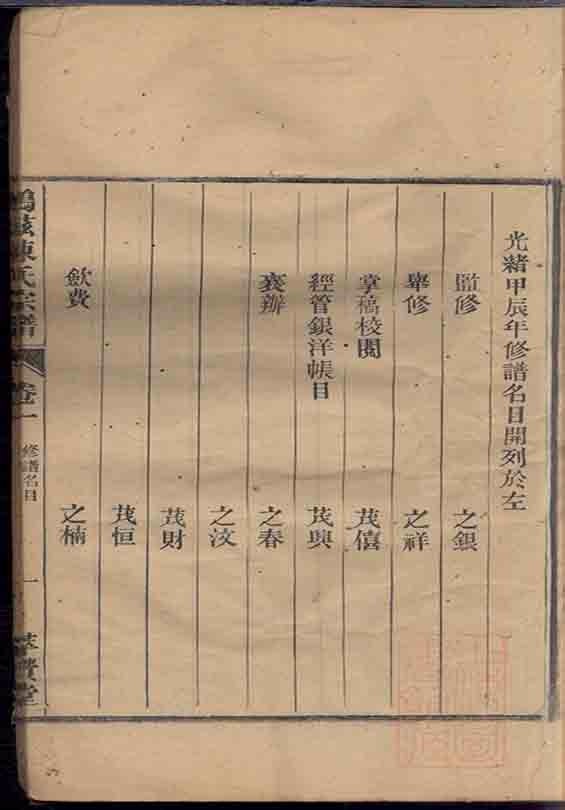 光緒甲辰年修譜名目開列於左
監修 之銀
舉修 之祥
掌稿校閱 茂僖
經管銀洋帳目 茂興
襄辦 之春
之汶
茂財
茂恒
歛費 之楠
陳氏宗譜
卷一
修譜名目
一
堂